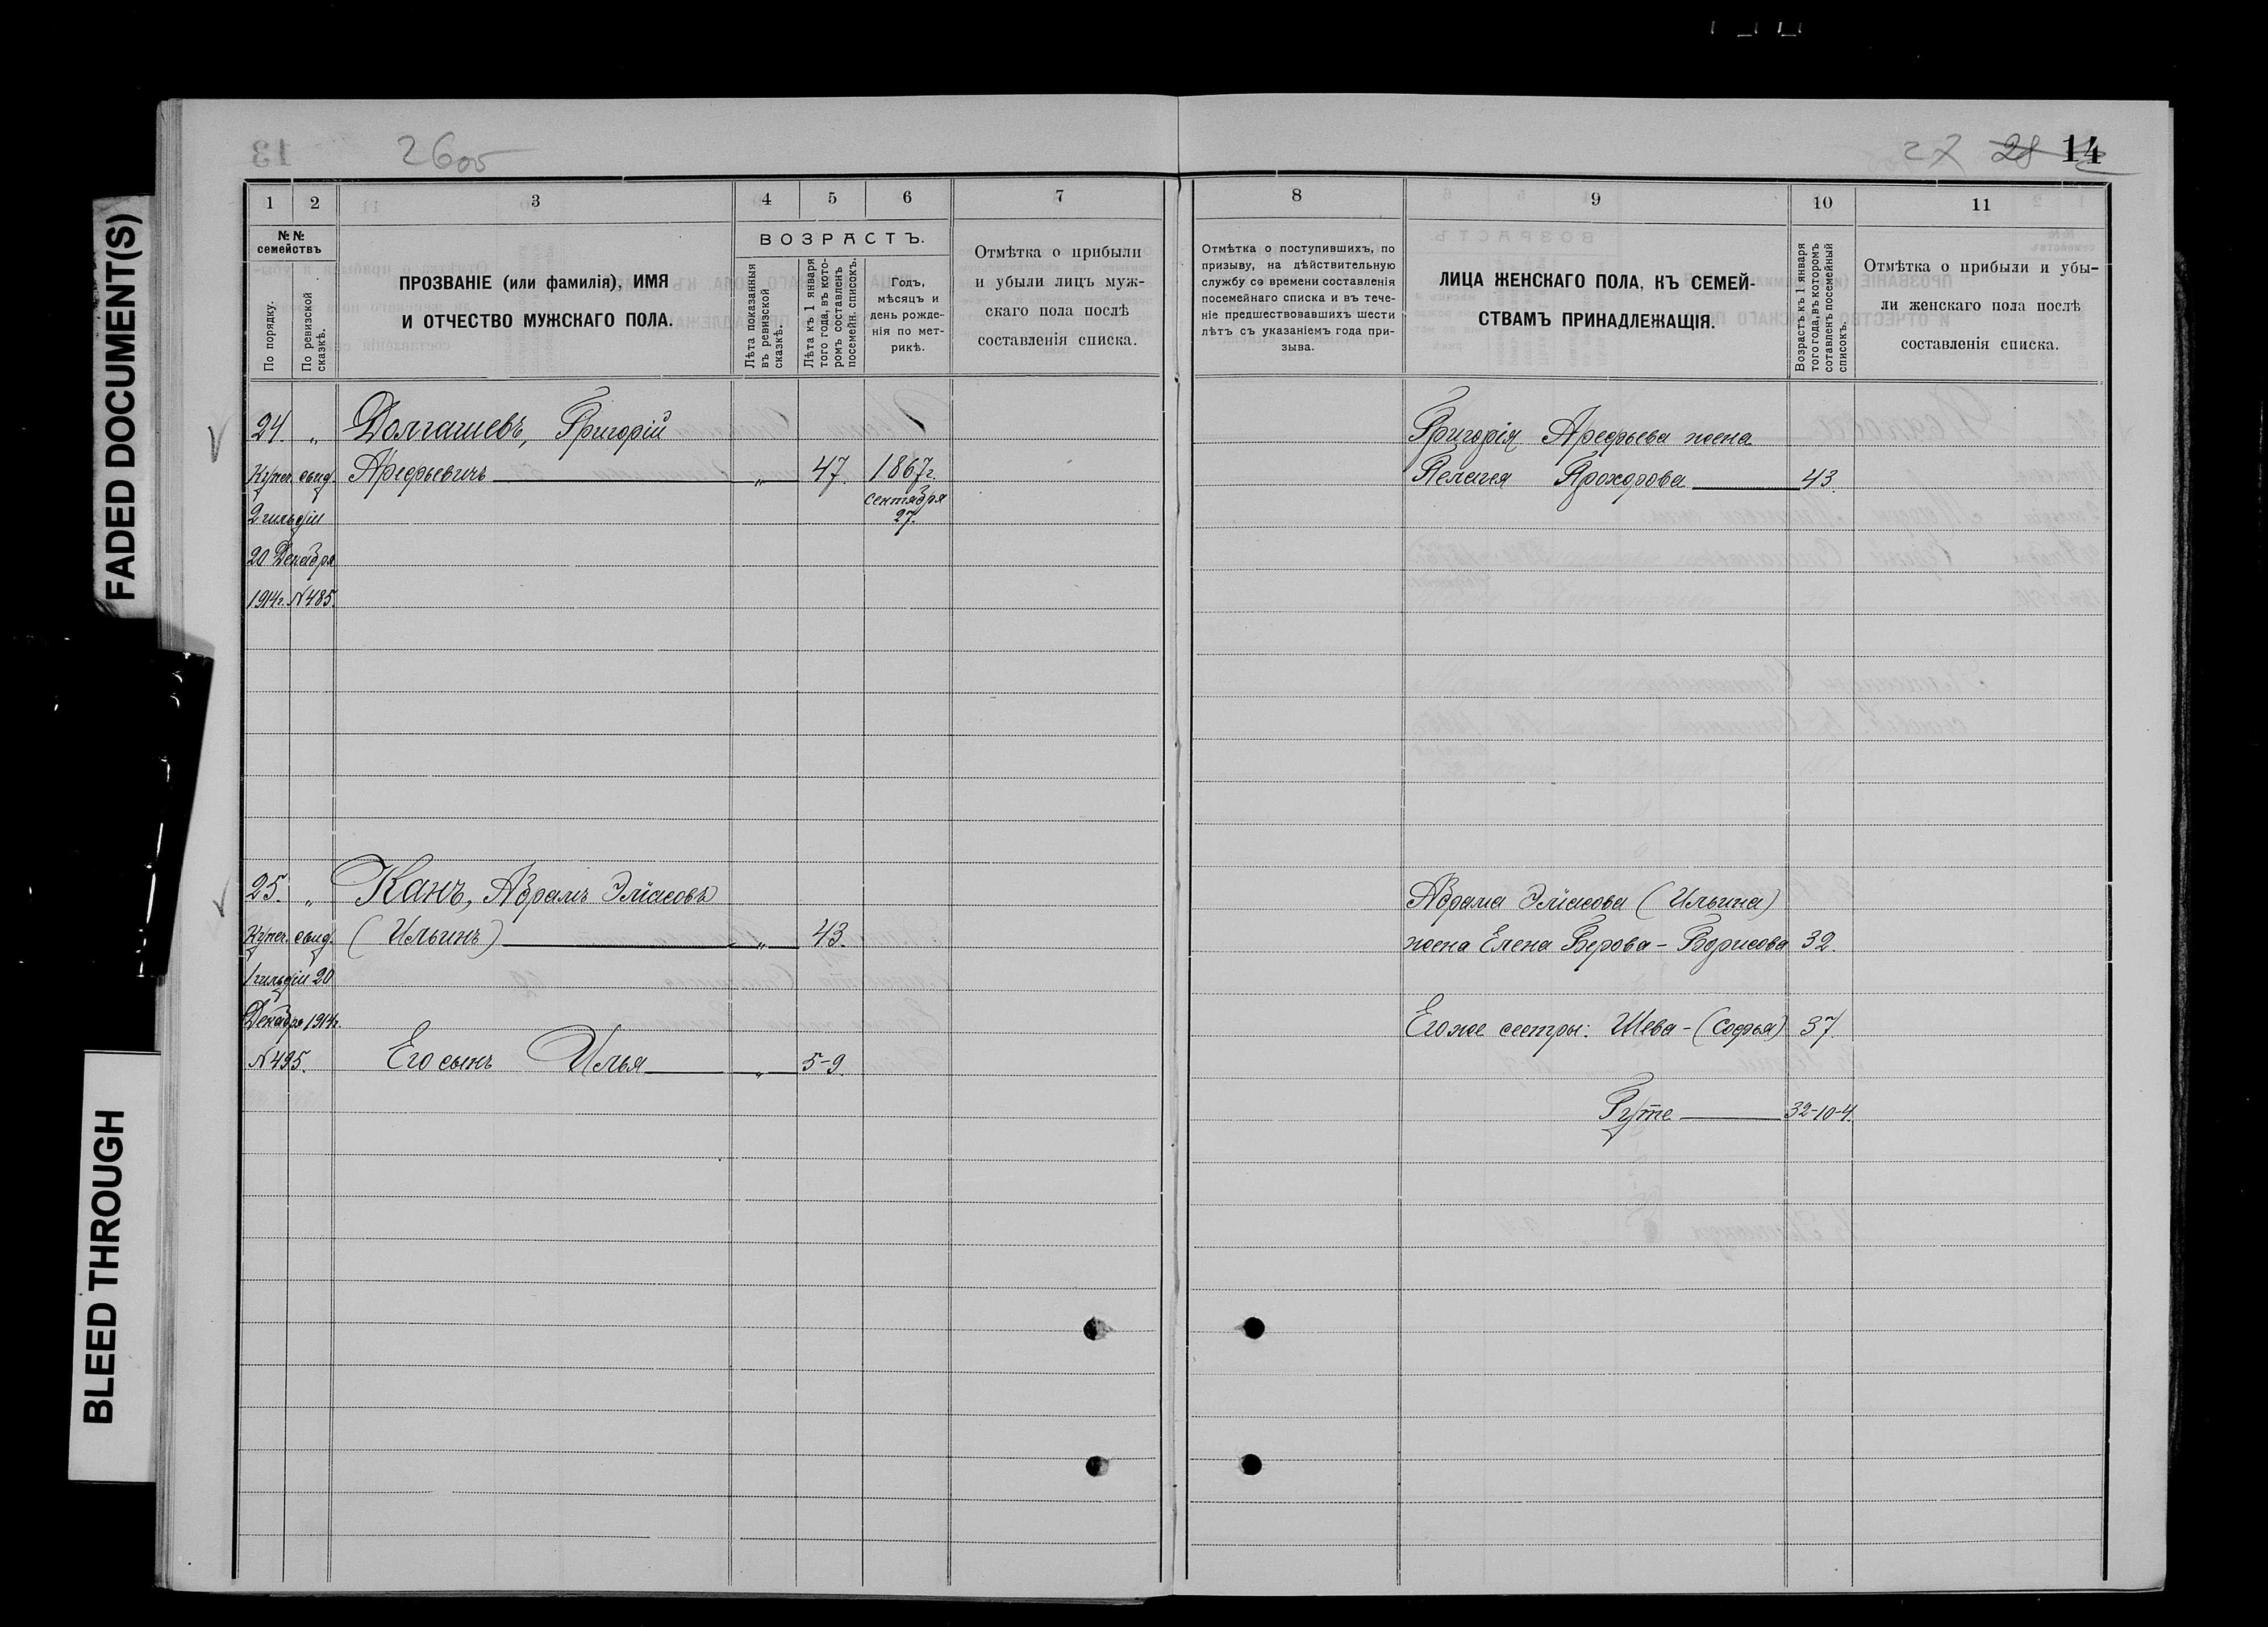 FADED DOCUMENT(S)
BLEED THROUGH
13
2600
27 28 14
1 2 3 4 5 6 7
№ №
семействъ
По порядку.
По ревизской сказкѣ.
ПРОЗВАНІЕ (или фамилія), ИМЯ
И ОТЧЕСТВО МУЖСКАГО ПОЛА.
ВОЗРАСТЪ.
Лѣта показанныя
въ ревизской
сказкѣ.
Лѣта къ 1 января
того года, въ кото-
ромъ составленъ
посемейн. списокъ.
Годъ,
мѣсяцъ и
день рожде-
нія по мет-
рикѣ.
Отмѣтка о прибыли
и убыли лицъ муж-
скаго пола послѣ
составленія списка.
24. „ Долгашевъ, Григорій
Купеч. свид. Арефьевичъ „ 47. 1867г.
2 гильдіи сентября
27.
20 Декабря
1914г. N 485.
25. „ Канъ, Абрамъ Эліасовъ
Купеч. свид. (Ильинъ) „ 43.
1 гильдіи 20
Декабря 1914г.
N 495. Его сынъ Илья „ 5-9.
8 9 10 11
Отмѣтка о поступившихъ, по
призыву, на дѣйствительную
службу со времени составленія
посемейнаго списка и въ тече-
ніе предшествовавшихъ шести
лѣтъ съ указаніемъ года при-
зыва.
ЛИЦА ЖЕНСКАГО ПОЛА, КЪ СЕМЕЙ-
СТВАМЪ ПРИНАДЛЕЖАЩІЯ.
Возрастъ къ 1 января
того года, въ которомъ
сотавленъ посемейный
списокъ.
Отмѣтка о прибыли и убы-
ли женскаго пола послѣ
составленія списка.
Григорія Арефьева жена
Пелагея Прохорова 43.
Абрама Эліасова (Ильина)
жена Елена Берова - Борисова 32.
Его же сестры: Шева - (Софья) 37.
Гуте 32-10-4.